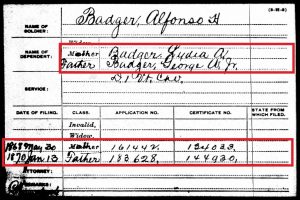 (3-213)
NAME OF SOLDIER: Badger, Alfonso H
NAME OF DEPENDENT: Mother Badger, Lydia A.
Father Badger, George W. Jr.
SERVICE: D. 1 Vt. Cav.
DATE OF FILING. CLASS. APPLICATION NO. CERTIFICATE NO. STATE FROM WHICH FILED.
Invalid,
Widow,
1868 May 30 Mother 161442, 124033,
1870 Jan 13 Father 183628, 144930,
ATTORNEY:
REMARKS: